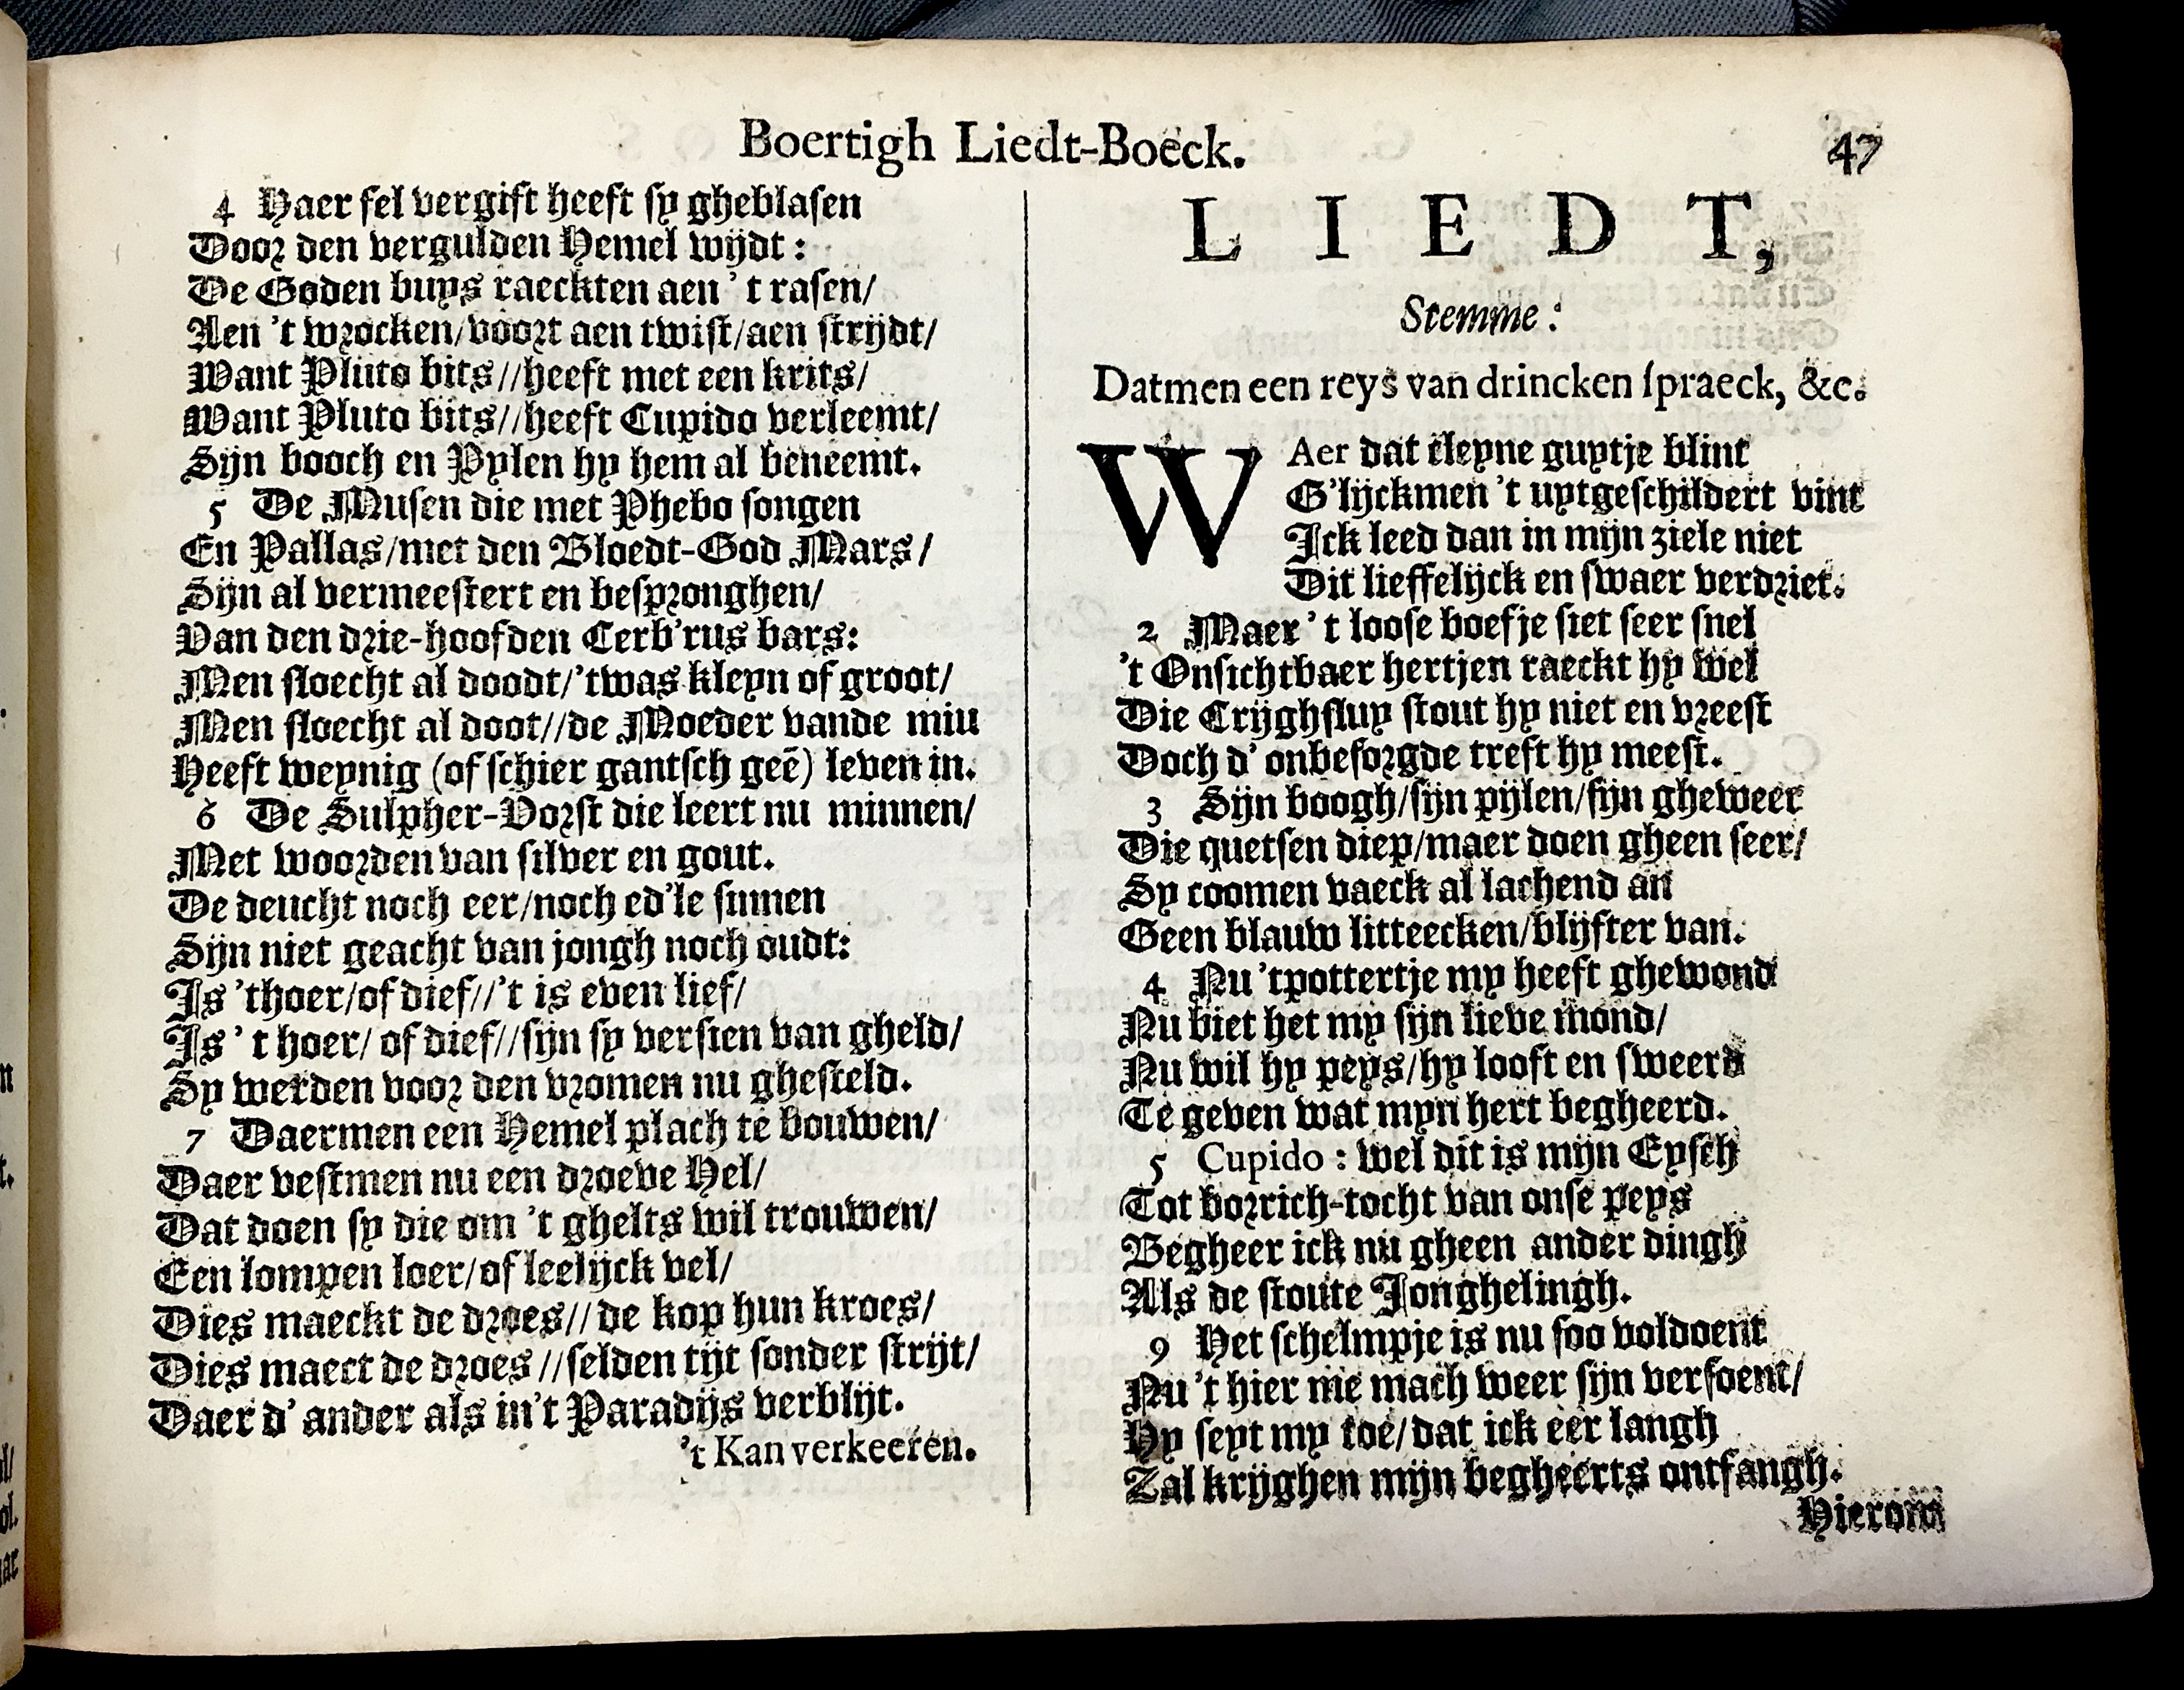 Boertigh Liedt-Boeck. 47
4 Haer fel vergift heeft sy gheblasen
Door den vergulden Hemel wijdt:
De Goden buys raeckten aen 't rasen/
Aen 't wrocken/voort aen twist/aen strijdt/
Want Pluto bits//heeft met een krits/
Want Pluto bits//heeft Cupido verleemt/
Sijn booch en Pylen hy hem al beneemt.
5 De Musen die met Phebo songen
En Pallas/met den Bloedt-God Mars/
Sijn al vermeestert en bespronghen/
Van den drie-hoofden Cerb'rus bars:
Men sloecht al doodt/'twas kleyn of groot/
Men sloecht al doot//de Moeder vande miu
Heeft weynig (of schier gantsch geē) leven in.
6 De Sulpher-Vorst die leert nu minnen/
Met woorden van silver en gout.
De deucht noch eer/noch ed'le sinnen
Sijn niet geacht van jongh noch oudt:
Is 'thoer/of dief//'t is even lief/
Is 't hoer/ of dief//sijn sy versien van gheld/
Sy werden voor den vromen nu ghesteld.
7 Daermen een Hemel plach te bouwen/
Daer vestmen nu een droeve Hel/
Dat doen sy die om 't ghelts wil trouwen/
Een lompen loer/of leelijck vel/
Dies maeckt de droes//de kop hun kroes/
Dies maect de droes //selden tijt sonder strijt/
Daer d' ander als in't Paradijs verblijt.
't Kan verkeeren.
LIEDT,
Stemme:
Datmen een reys van drincken spraeck, &c.
WAer dat cleyne guytje blint
G'lijckmen 't uytgeschildert vint
Ick leed dan in mijn ziele niet
Dit lieffelijck en swaer verdriet.
2 Maer 't loose boefje siet seer snel
't Onsichtbaer hertjen raeckt hy wel
Die Crijghsluy stout hy niet en vreest
Doch d' onbesorgde treft hy meest.
3 Sijn boogh/sijn pijlen/sijn gheweer
Die quetsen diep/maer doen gheen seer/
Sy coomen vaeck al lachend an
Geen blauw litteecken/blijfter van.
4 Nu 'tpottertje my heeft ghewond
Nu biet het my sijn lieve mond/
Nu wil hy peys/hy looft en sweerd
Te geven wat myn hert begheerd.
5 Cupido: wel dit is mijn Eysch
Tot borrich-tocht van onse peys
Begheer ick nu gheen ander dingh
Als de stoute Jonghelingh.
9 Het schelmpje is nu soo voldoent
Nu 't hier me mach weer sijn versoent/
Hy seyt my toe/dat ick eer langh
Zal krijghen mijn begheerts ontfangh.
Hierom